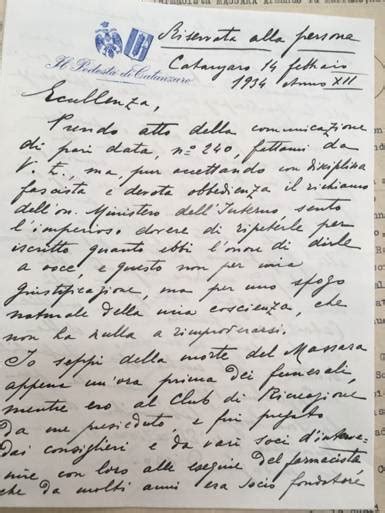 Riservata alla persona
Il Podestà di Catanzaro
Catanzaro 14 febbraio
1934 Anno XII
Eccellenza,
Prendo atto della comunicazione
di pari data, n° 240, fattami da
V. E., ma, pur accettando con disciplina
fascista e devota obbedienza il richiamo
dell'on. Ministero dell'Interno, sento
l'imperioso dovere di ripeterle per
iscritto quanto ebbi l'onore di dirle
a voce, e questo non per mia
giustificazione, ma per uno sfogo
naturale della mia coscienza, che
non ha nulla a rimproverarsi.
Io seppi della morte del Massara
appena un'ora prima dei funerali,
mentre ero al Club di Ricreazione
da me presieduto, e fui pregato
dai consiglieri e da vari soci d'interve-
nire con loro alle esequie del farmacista
che da molti anni era socio fondatore